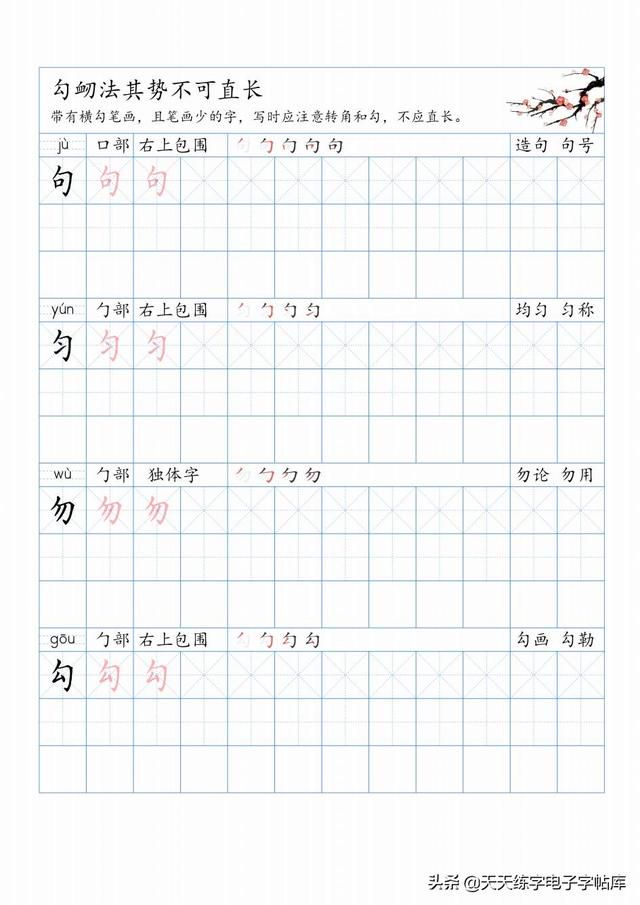 勾刎法其势不可直长
带有横勾笔画，且笔画少的字，写时应注意转角和勾，不应直长。
jù 口部 右上包围 造句 句号
句 句 句
yún 勹部 右上包围 均匀 匀称
匀 匀 匀
wù 勹部 独体字 勿论 勿用
勿 勿 勿
gōu 勹部 右上包围 勾画 勾勒
勾 勾 勾
头条 @天天练字电子字帖库